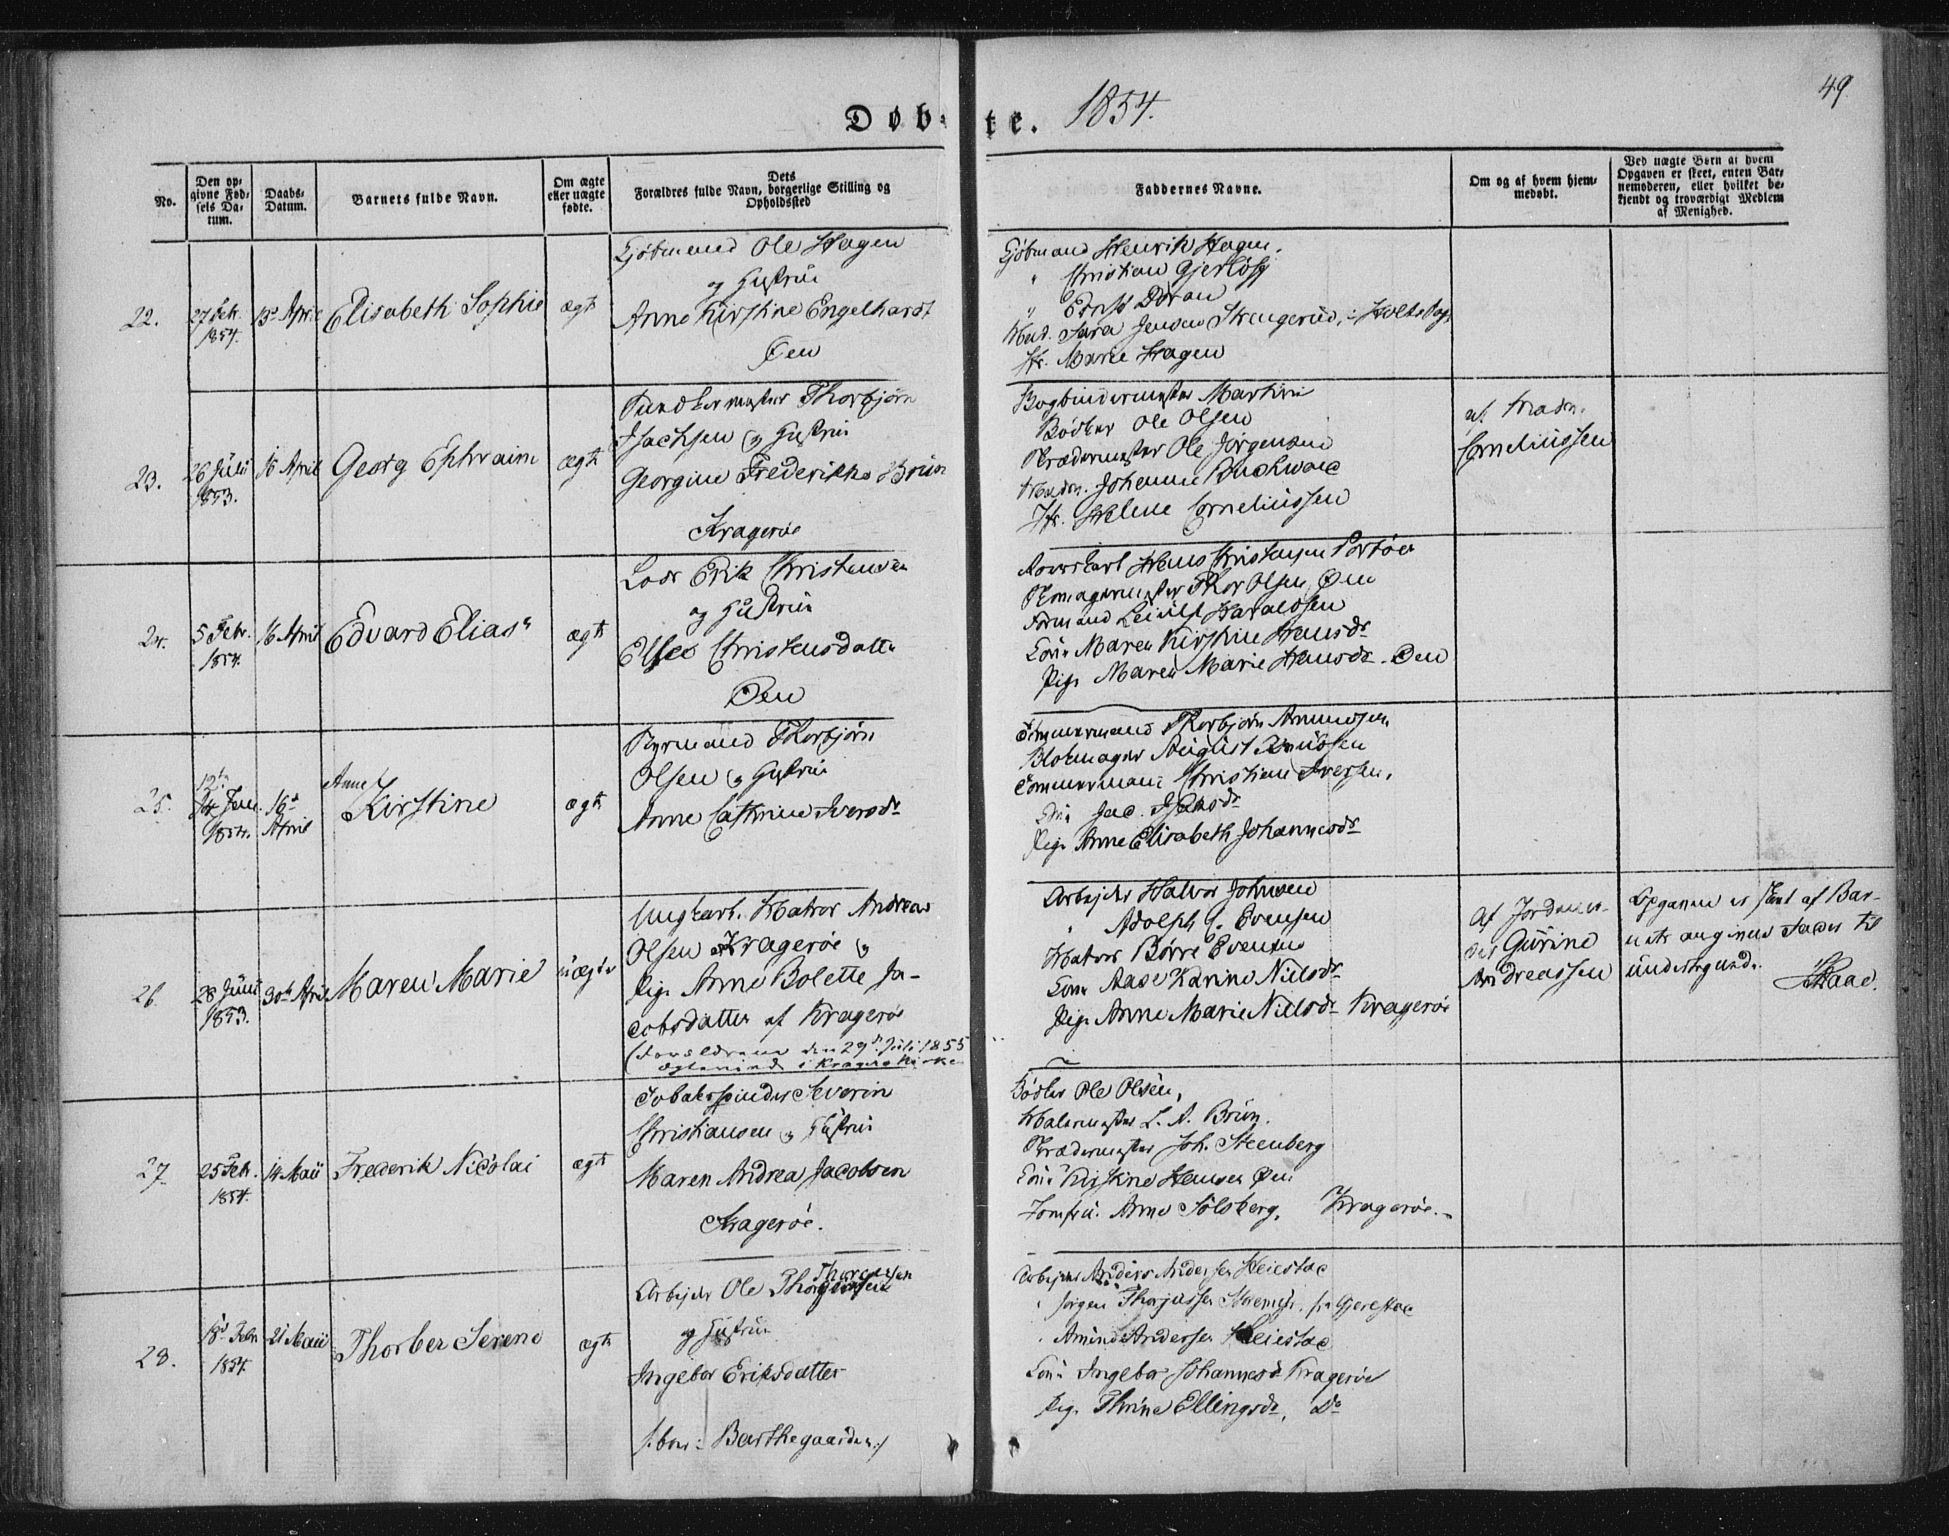 49
Døb- te. 1854.
No.
Den op-
givne Fød-
sels Da-
tum.
Daabs-
Datum.
Barnets fulde Navn.
Om ægte
eller uægte
fødte.
Dets
Forældres fulde Navn, borgerlige Stilling og
Opholdssted
Faddernes Navne.
Om og af hvem hjem-
medøbt.
Ved uægte Børn af hvem
Opgaven er skeet, enten Bar-
nemoderen, eller hvilket be-
kjendt og troværdigt Medlem
af Menighed.
22.
27 Feb.
1854.
13d April
Elisabeth Sophie
ægte
Kjøbmand Ole Hagen
og Hustrue
Anne Kirstine Engelhardt
Øen
Kjøbmand Henrik Hagen.
" Christian Gjerløff
" Ernst Doran
Mad. Sara Jensen
Jfr. Marie Hagen
23.
26 Juli
1853.
16 April
Georg Ephraim
ægte
Thorbjørn
Isachsen og Hustrue
Georgine Frederikke Brun
Kragerøe
Bogbindermester Martini
Bødker Ole Olsen
Skrædermester Ole Jørgensen
Madm. Johanne
Jfr. Helene Corneliussen
af Madm.
Corneliussen
24.
5 Febr.
1854.
16 April
Edvard Elias
ægte
Lods Erik Christensen
og Hustrue
Christensdatter
Øen
Hans Christensen Portøer
Skomagermester Thor Olsen, Øen
Haraldsen
Kone Maren Kirstine Hansdr
Pige Maren Marie Hansdr. Øen
25.
12te
Jan.
1854.
16d
April
Anne
Kirstine
ægte
Styrmand Thorbjørn
Olsen og Hustrue
Anne Cathrine Iversdr
Tømmermand Thorbjørn Amundsen
Blokmager August Knudsen
Tømmermand Christian Iversen.
Kone
Pige Anne Elisabeth Johannesdr
26.
28 Juni
1853.
30te April
Maren Marie
uægte
Ungkarl. Matros Andreas
Olsen Kragerøe og
Pige Anne Bolette Ja-
cobsdatter af Kragerøe
(Forældrene den 29d Juli 1855
ægteviede i Kragerø Kirke
Arbejder Halvor Johnsen
" Adolph C. Evensen
Matros Børre Evensen
Kone Aase Karine Nielsdr
Pige Anne Marie Nielsdr Kragerøe
Af Jordemo-
der Gurine
Andreassen
Opgaven er skeet af Bar-
nets angivne Fader til
undertegnede.
27.
25 Feb.
1854.
14 Maii
Frederik Nicolai
ægte
Tobakspinder Severin
Christiansen og Hustrue
Maren Andrea Jacobsen
Kragerøe.
Bødker Ole Olsen,
Malermester L. A. Brun.
Skrædermester Joh. Steenberg
Kone Kirstine Hansen Øen
Jomfru. Anne Solberg, Kragerøe.
28.
18d Febr
1854.
21 Maii
Thorber Serene
ægte
Arbejder Ole Thoresen
og Hustrue
Ingebor Eriksdatter
/: boe: Barthegaarden:/
Arbejder Anders Andersen Heiestad
" Jørgen Thorjussen
" Amund Andersen Heiestad
Kone Ingebor Johannesd Kragerøe
Pige Thrine Ellingsdr, Do